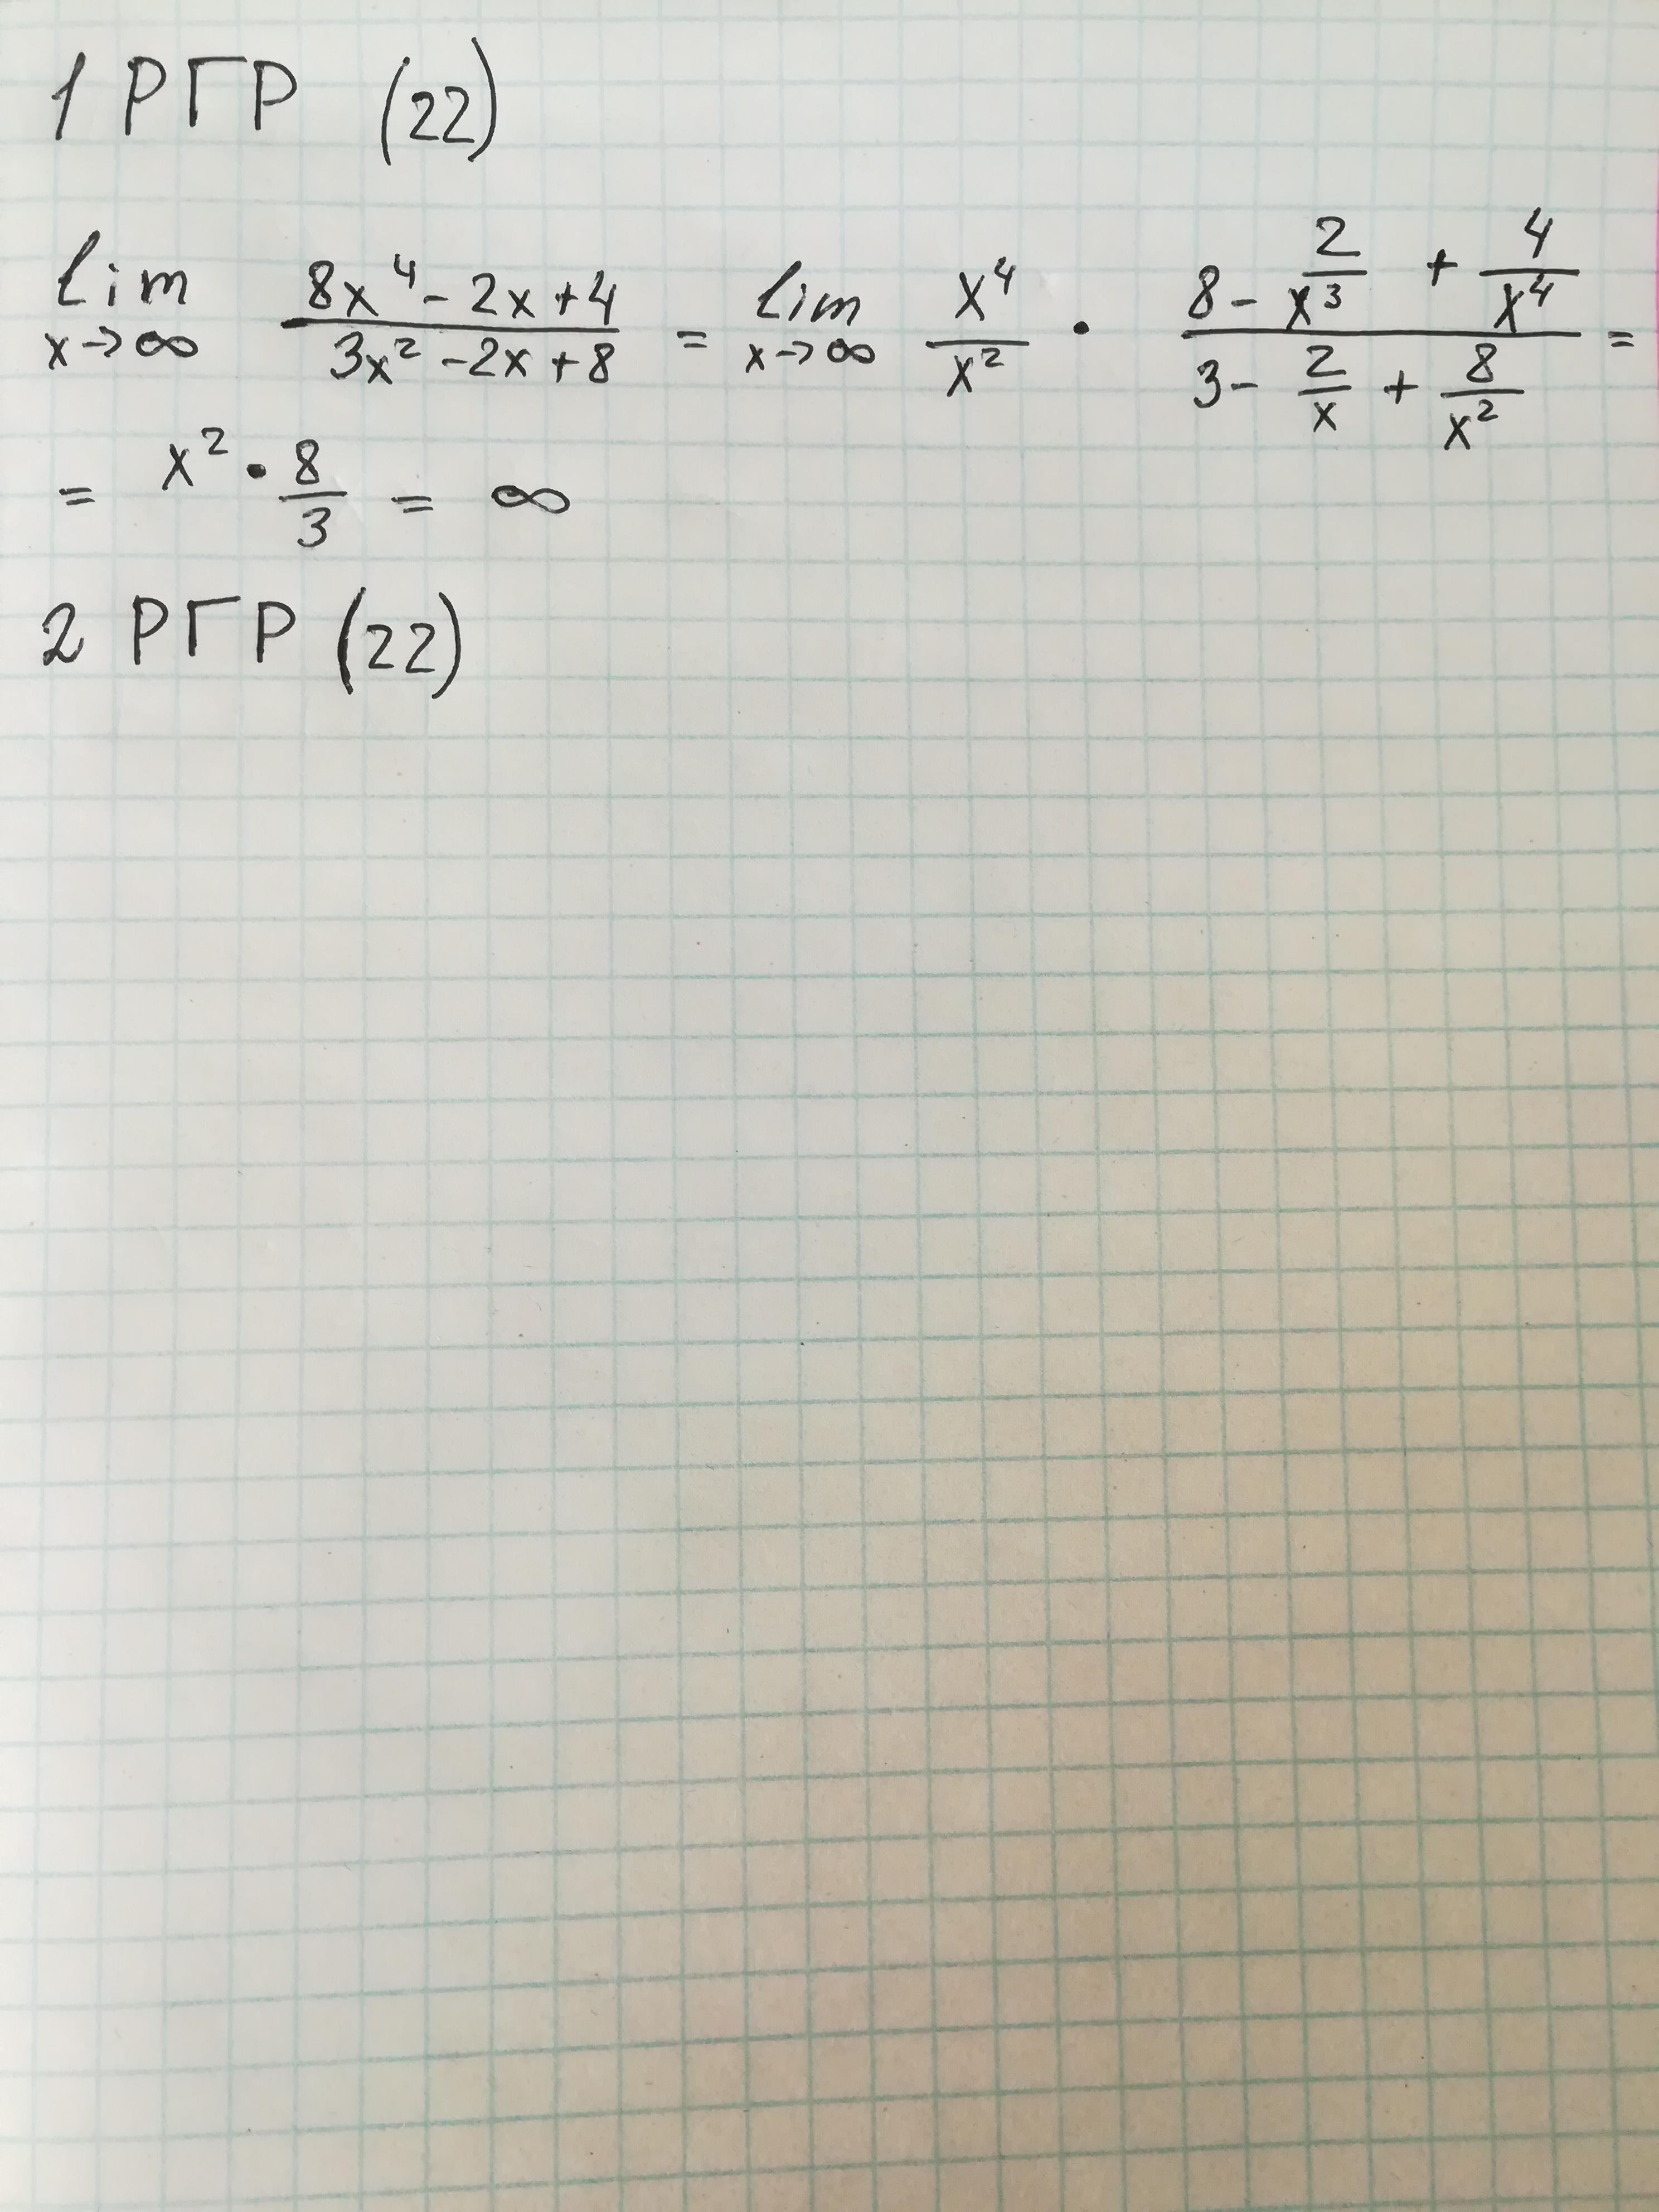 1 РГР (22)
lim x→∞ (8x⁴ - 2x + 4)/(3x² - 2x + 8) = lim x→∞ x⁴/x² · (8 - 2/x³ + 4/x⁴)/(3 - 2/x + 8/x²) =
= x² · 8/3 = ∞
2 РГР (22)